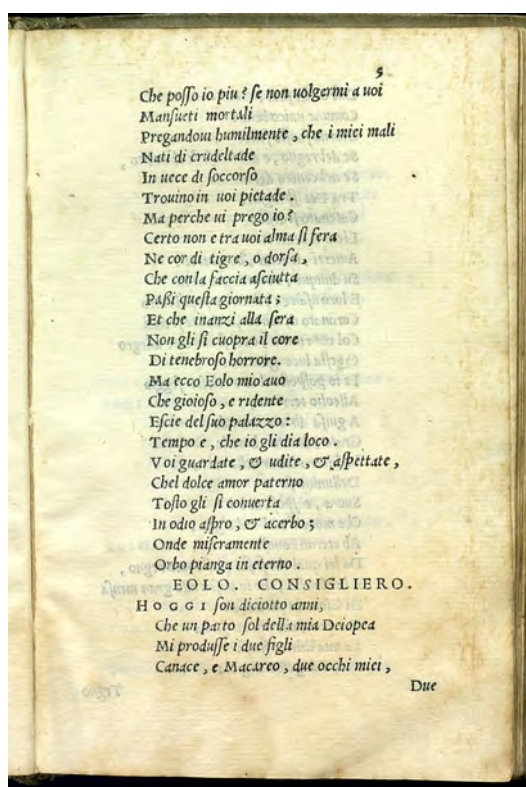 5
Che posso io piu? se non uolgermi a uoi
Mansueti mortali
Pregandoui humilmente, che i miei mali
Nati di crudeltade
In uece di soccorso
Trouino in uoi pietade.
Ma perche ui prego io?
Certo non e tra uoi alma si fera
Ne cor di tigre, o dorsa,
Che con la faccia asciutta
Passi questa giornata;
Et che inanzi alla sera
Non gli si cuopra il core
Di tenebroso horrore.
Ma ecco Eolo mio auo
Che gioioso, e ridente
Escie del suo palazzo:
Tempo e, che io gli dia loco.
Voi guardate, & udite, & aspettate,
Chel dolce amor paterno
Tosto gli si conuerta
In odio aspro, & acerbo;
Onde miseramente
Orbo pianga in eterno.
EOLO. CONSIGLIERO.
HOGGI son diciotto anni,
Che un parto sol della mia Deiopea
Mi produsse i due figli
Canace, e Macareo, due occhi miei,
Due